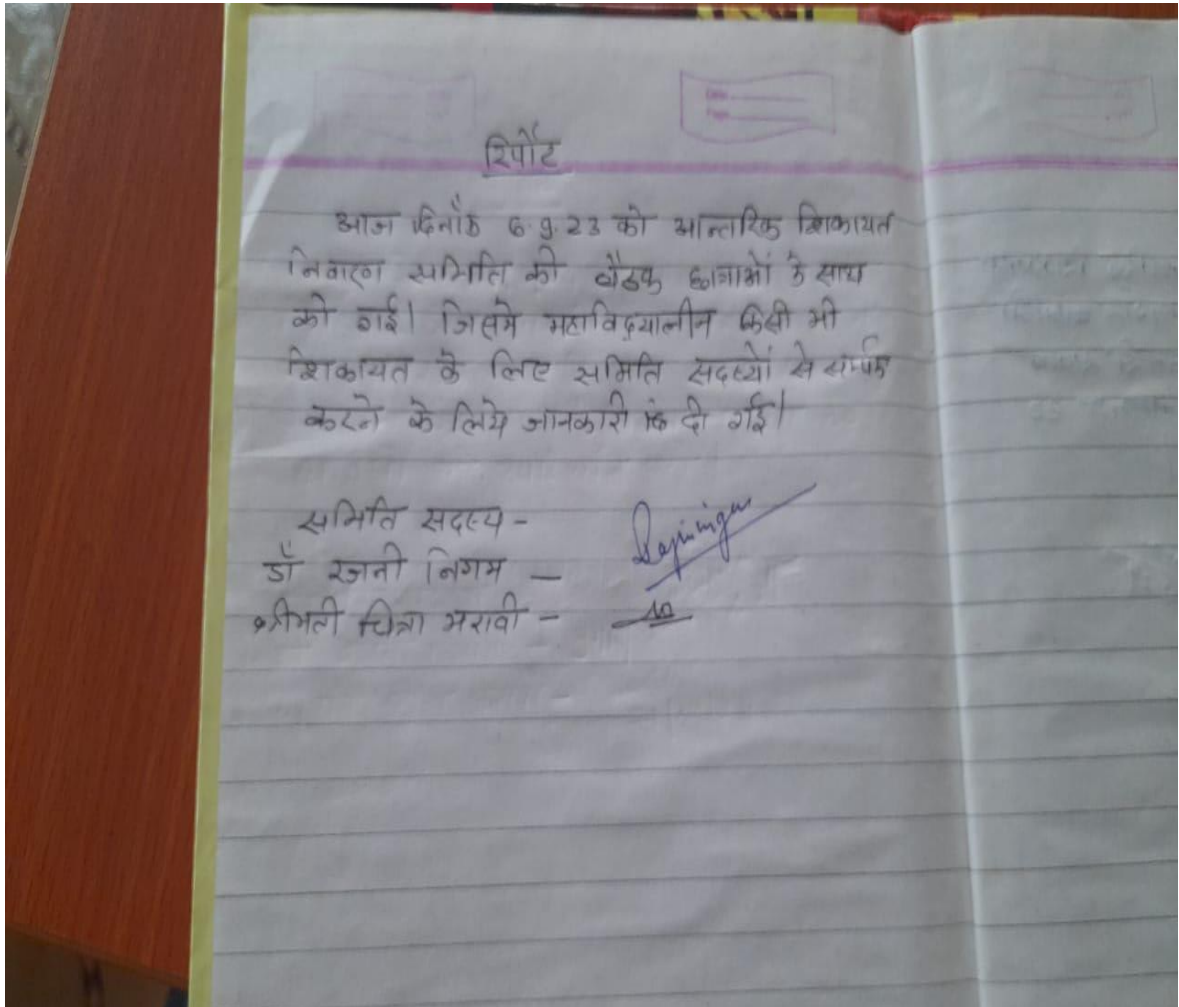 रिपोर्ट
आज दिनाँक 6.9.23 को आन्तरिक शिकायत
निवारण समिति की बैठक छात्राओं के साथ
की गई। जिसमे महाविद्यालीन किसी भी
शिकायत के लिए समिति सदस्यों से सम्पर्क
करने के लिये जानकारी दी गई।
समिति सदस्य -
डॉ रजनी निगम - Rajninigam
श्रीमती चित्रा मरावी -